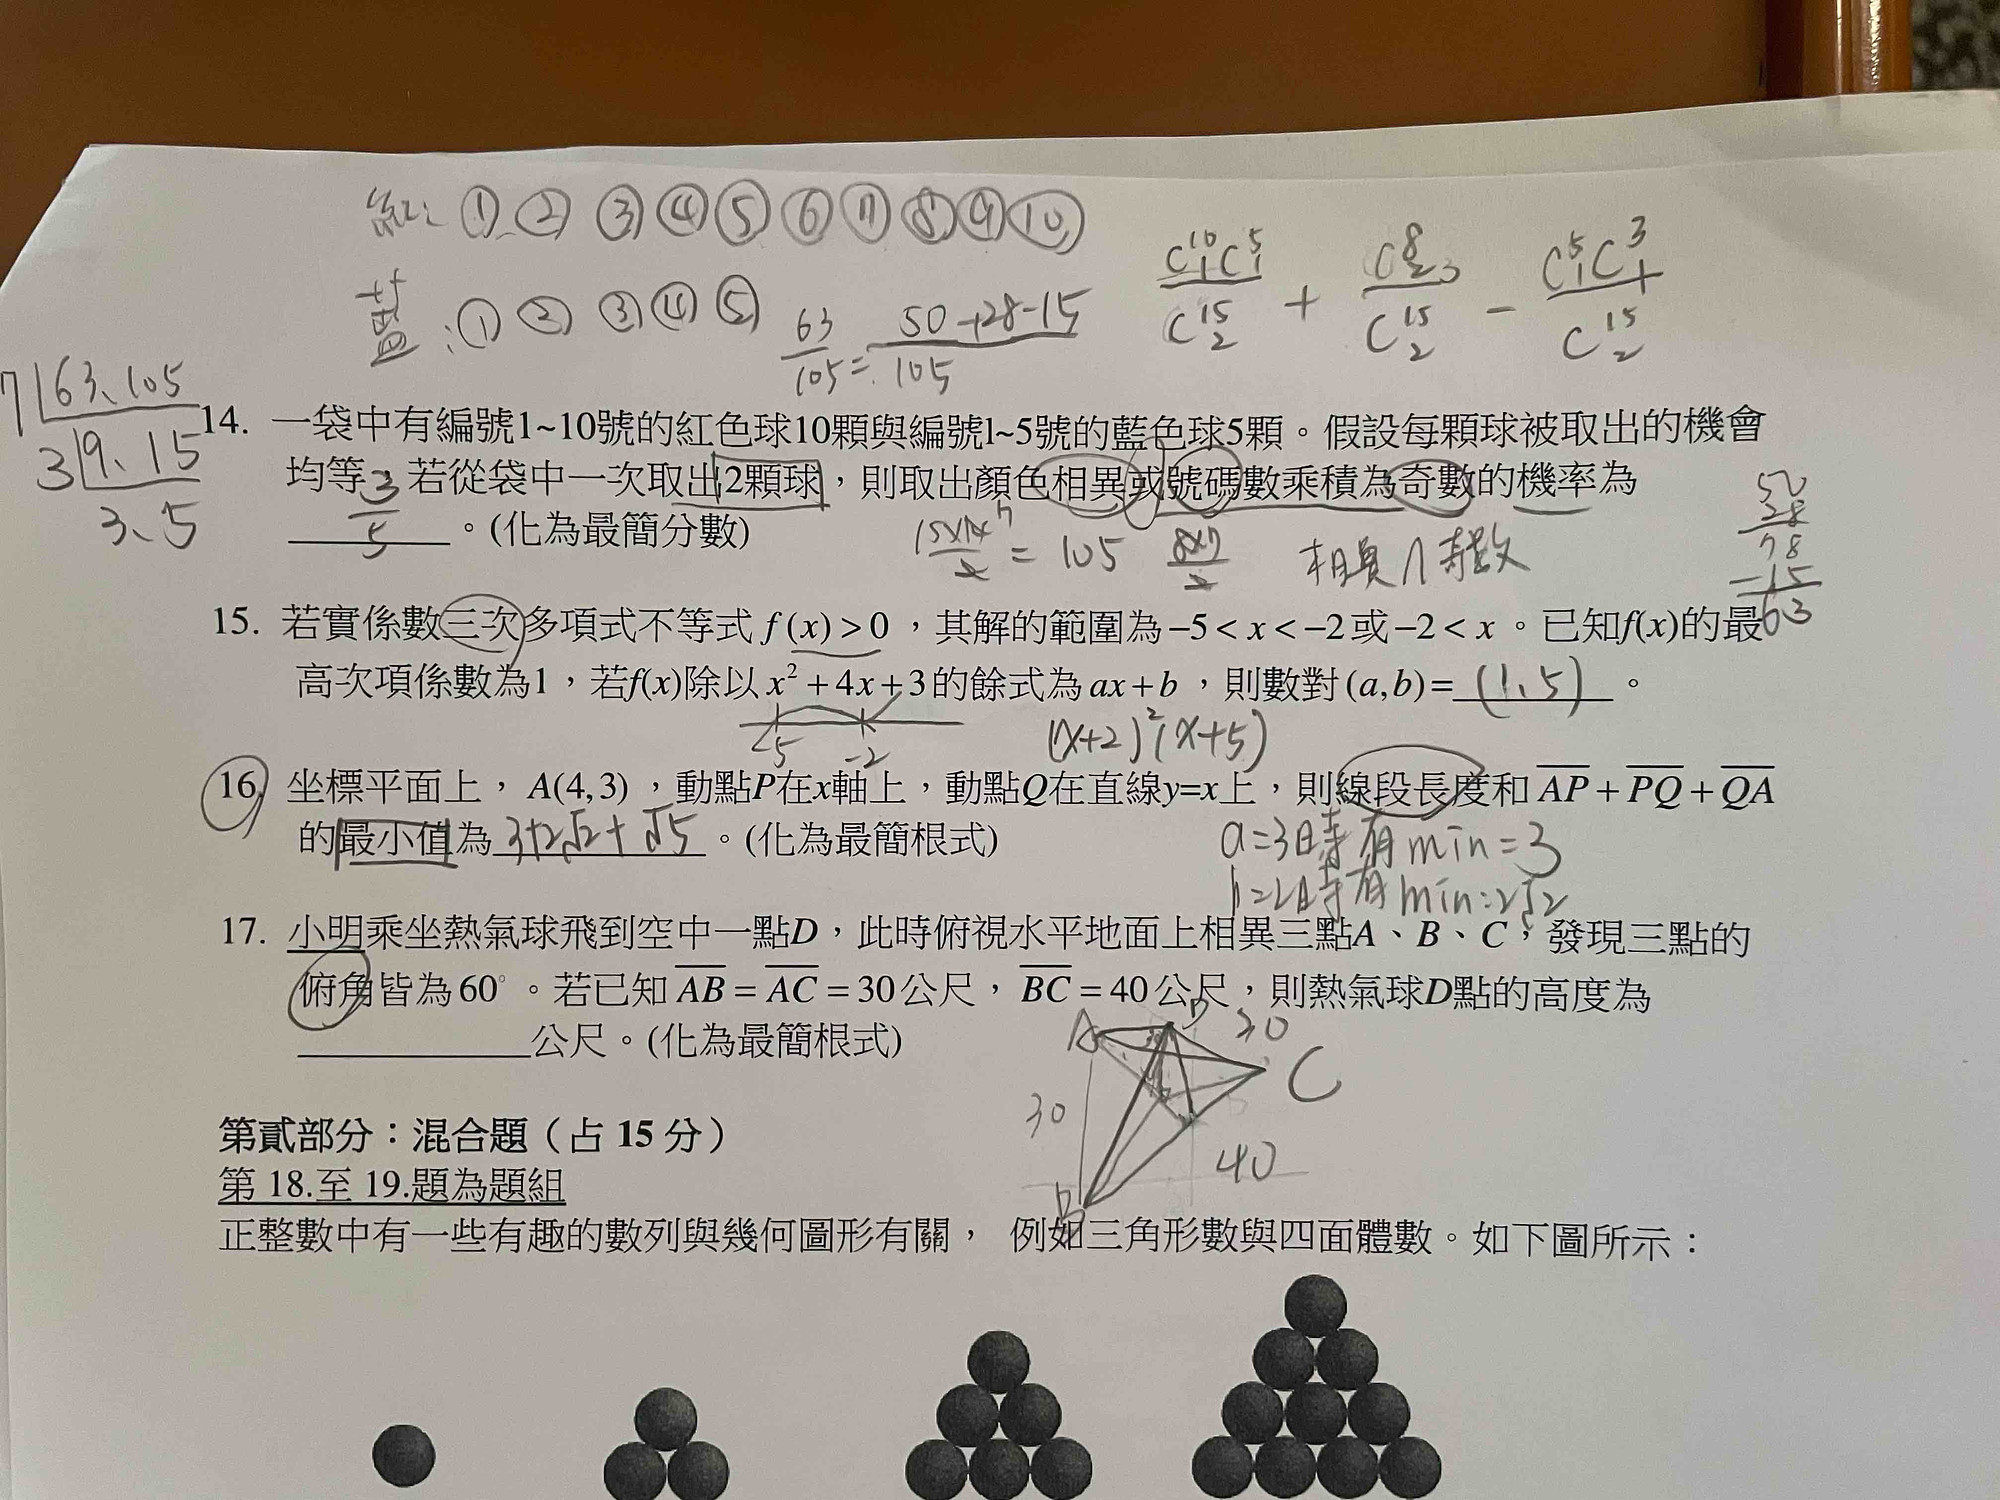 紅: ① ② ③ ④ ⑤ ⑥ ⑦ ⑧ ⑨ ⑩
藍: ① ② ③ ④ ⑤
63/105 = (50+28-15)/105
C¹⁰₁C⁵₁/C¹⁵₂ + C⁸₂/C¹⁵₂ - C⁵₁C³₁/C¹⁵₂
7 63、105
3 9、15
3、5
14. 一袋中有編號1~10號的紅色球10顆與編號1~5號的藍色球5顆。假設每顆球被取出的機會
均等，若從袋中一次取出2顆球，則取出顏色相異或號碼數乘積為奇數的機率為
3/5 。(化為最簡分數)
15×14/2 = 105 8×7/2 相異∩奇數
50
28
78
-15
63
15. 若實係數三次多項式不等式 f(x)>0，其解的範圍為−5<x<−2或−2<x。已知f(x)的最
高次項係數為1，若f(x)除以x²+4x+3的餘式為ax+b，則數對(a,b)=(1、5)。
-5 -2 (x+2)²(x+5)
16. 坐標平面上，A(4,3)，動點P在x軸上，動點Q在直線y=x上，則線段長度和AP+PQ+QA
的最小值為3+2√2+√5。(化為最簡根式)
a=3時有min=3
b=2時有min=2√2
17. 小明乘坐熱氣球飛到空中一點D，此時俯視水平地面上相異三點A、B、C，發現三點的
俯角皆為60°。若已知AB=AC=30公尺，BC=40公尺，則熱氣球D點的高度為
公尺。(化為最簡根式)
A D 30 C
30
40
B
第貳部分：混合題（占15分）
第 18.至 19.題為題組
正整數中有一些有趣的數列與幾何圖形有關， 例如三角形數與四面體數。如下圖所示：